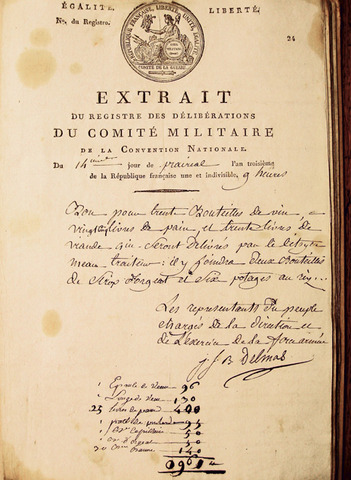 ÉGALITÉ. LIBERTÉ.
Nos. du Registre.
24
RÉPUBLIQUE FRANÇAISE, LIBERTÉ, UNITÉ, ÉGALITÉ
COMITÉ DE LA GUERRE
EXTRAIT
DU REGISTRE DES DÉLIBÉRATIONS
DU COMITÉ MILITAIRE
DE LA CONVENTION NATIONALE.
Du 14 jour de prairial l'an troisième
de la République française une et indivisible, 9 heures
Bon pour trente Bouteilles de vin,
vingt livres de pain, et trente livres de
viande qui seront délivrés par le
traiteur: il y joindra deux Bouteilles
de Sirop d'orgeat et Six potages au ris
Les representants du peuple
chargés de la direction et
de de la force armée
J f B Delmas
96
130
25 livres de 400
95
50
50
140